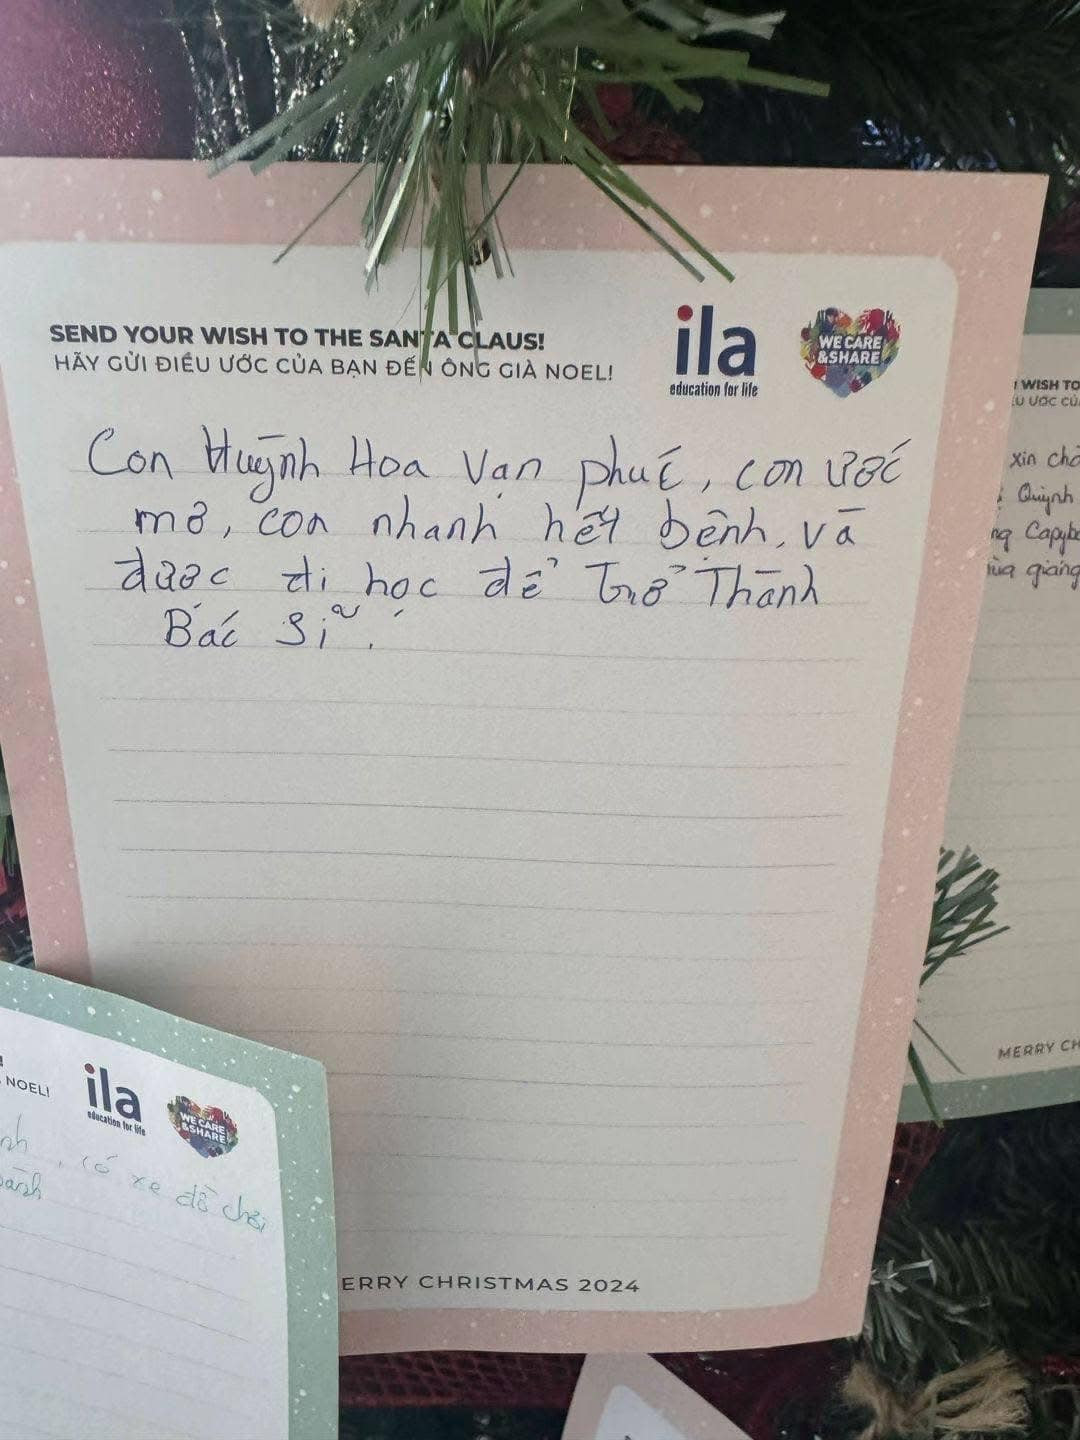 SEND YOUR WISH TO THE SANTA CLAUS!
HÃY GỬI ĐIỀU ƯỚC CỦA BẠN ĐẾN ÔNG GIÀ NOEL!
ila
education for life
WE CARE
&SHARE
Con Huỳnh Hoa Vạn phúc, con ước
mơ, con nhanh hết bệnh. và
được đi học để Trở Thành
Bác Sĩ.
MERRY CHRISTMAS 2024
WISH TO
xin
Quỳnh
giáng
MERRY
NOEL!
ila
education for life
WE CARE
&SHARE
có xe đồ chơi